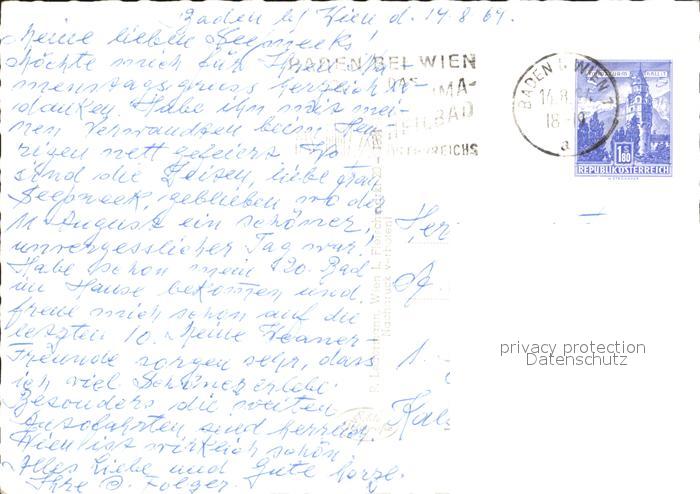 Baden b/ Wien d. 14.8.64.
Meine lieben Seepzecks!
Möchte mich für Ihren Na-
menstagsgruss herzlich be-
danken. Habe ihn mit mei-
nen Verwandten beim Heu-
rigen nett gefeiert. Wo
sind die Zeiten, liebe Frau
geblieben wo der
11. August ein schöner,
unvergesslicher Tag war!
Habe schon mein 120. Bad
im Hause bekommen und
freue mich schon auf die
letzten 10. Meine Wiener-
Freunde sorgen sehr, dass
ich viel Schönes erlebe.
Besonders die weiten
Autofahrten sind herrlich,
Wien ist wirklich schön.
Alles Liebe und Gute herzl.
Ihre Folger.
BADEN BEI WIEN
DAS
HEILBAD
ÖSTERREICHS
BADEN b. WIEN 1
14.8.
18
a
1.80
REPUBLIK ÖSTERREICH
privacy protection
Datenschutz